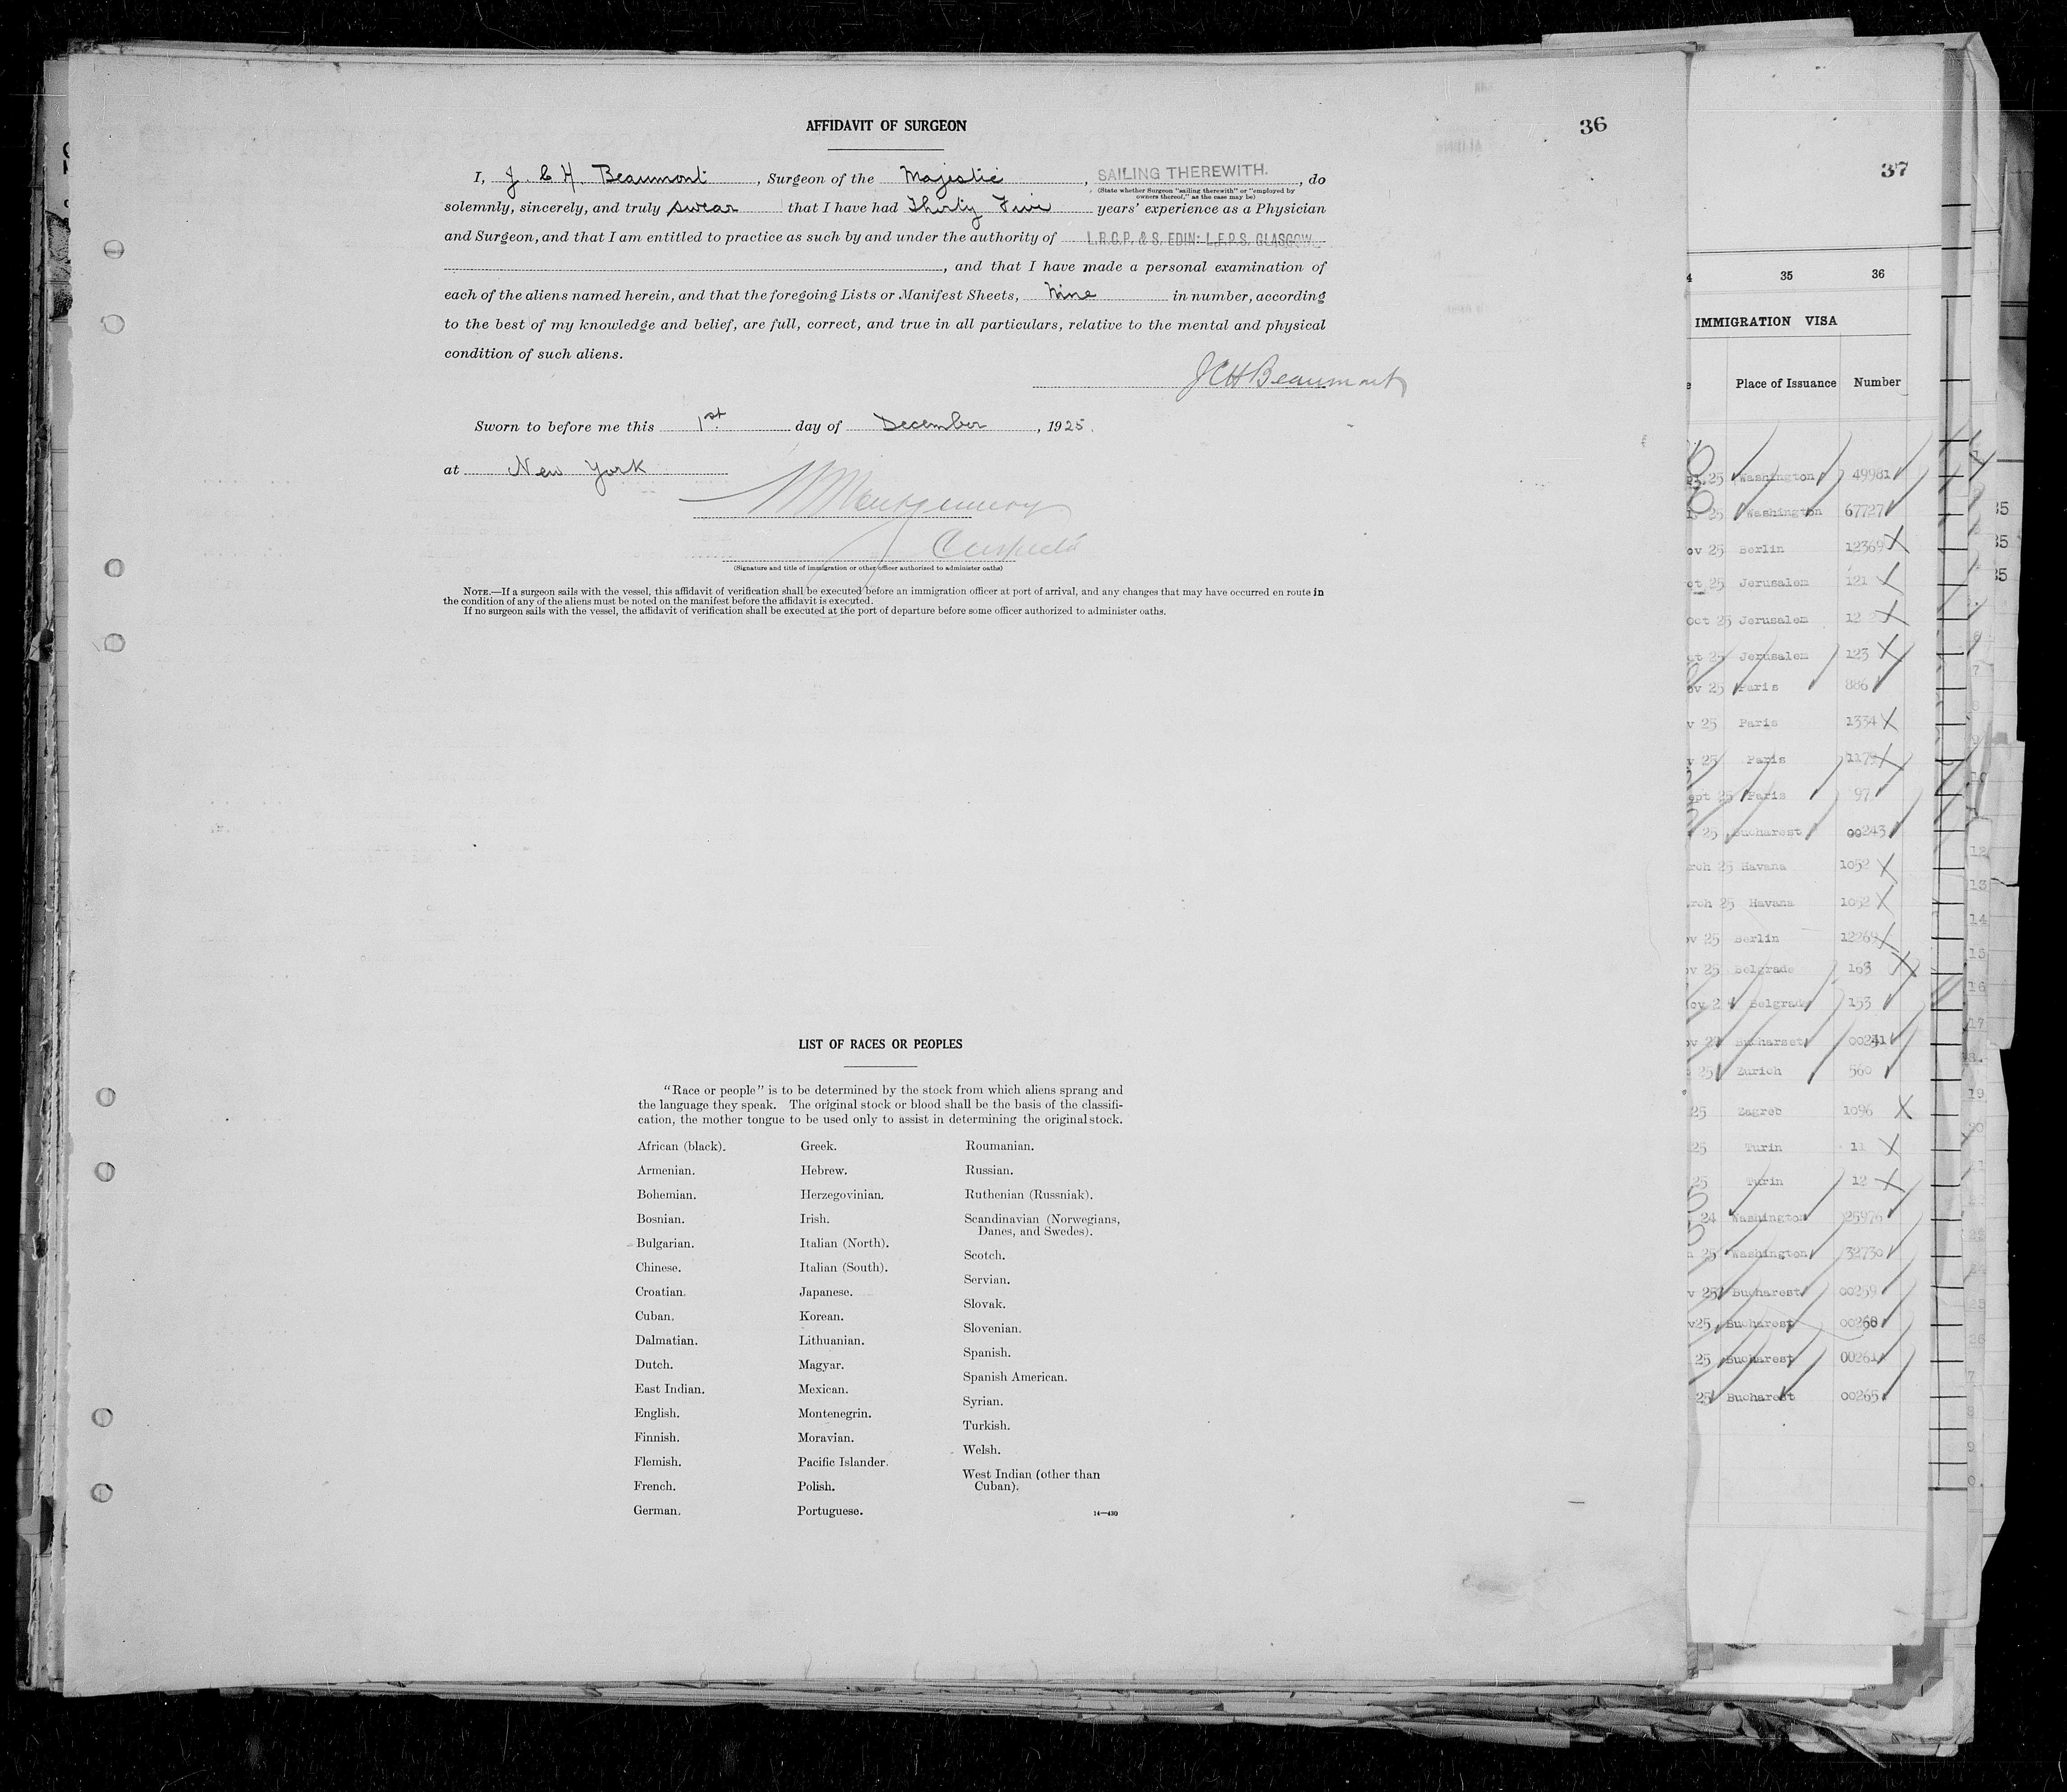 AFFIDAVIT OF SURGEON
36
I, J. C. H. Beaumont, Surgeon of the Majestic, SAILING THEREWITH., do
(State whether Surgeon "sailing therewith" or "employed by
owners thereof," as the case may be)
solemnly, sincerely, and truly swear that I have had Thirty Five years' experience as a Physician
and Surgeon, and that I am entitled to practice as such by and under the authority of L.R.C.P. & S. EDIN: L.F.P.S. GLASGOW
, and that I have made a personal examination of
each of the aliens named herein, and that the foregoing Lists or Manifest Sheets, Nine in number, according
to the best of my knowledge and belief, are full, correct, and true in all particulars, relative to the mental and physical
condition of such aliens.
JCHBeaumont
Sworn to before me this 1st day of December, 1925.
at New York
Montgomery
(Signature and title of immigration or other officer authorized to administer oaths)
NOTE.—If a surgeon sails with the vessel, this affidavit of verification shall be executed before an immigration officer at port of arrival, and any changes that may have occurred en route in
the condition of any of the aliens must be noted on the manifest before the affidavit is executed.
If no surgeon sails with the vessel, the affidavit of verification shall be executed at the port of departure before some officer authorized to administer oaths.
LIST OF RACES OR PEOPLES
"Race or people" is to be determined by the stock from which aliens sprang and
the language they speak. The original stock or blood shall be the basis of the classifi-
cation, the mother tongue to be used only to assist in determining the original stock.
African (black).
Armenian.
Bohemian.
Bosnian.
Bulgarian.
Chinese.
Croatian.
Cuban.
Dalmatian.
Dutch.
East Indian.
English.
Finnish.
Flemish.
French.
German.
Greek.
Hebrew.
Herzegovinian.
Irish.
Italian (North).
Italian (South).
Japanese.
Korean.
Lithuanian.
Magyar.
Mexican.
Montenegrin.
Moravian.
Pacific Islander.
Polish.
Portuguese.
Roumanian.
Russian.
Ruthenian (Russniak).
Scandinavian (Norwegians,
Danes, and Swedes).
Scotch.
Servian.
Slovak.
Slovenian.
Spanish.
Spanish American.
Syrian.
Turkish.
Welsh.
West Indian (other than
Cuban).
14—430
37
35 36
IMMIGRATION VISA
Place of Issuance Number
25 Washington 49981
25 Washington 67727
ov 25 Berlin 12369
25 Jerusalem 121
Oct 25 Jerusalem 12
25 Jerusalem 123
ov 25 Paris 886
v 25 Paris 1334
25 Paris 1179
ept 25 Paris 97
25 Bucharest 00243
rch 25 Havana 1052
rch 25 Havana 1052
ov 25 Berlin 12269
ov 25 Belgrade 163
ov 2 Belgrade 153
ov Bucharset 00241
25 Zurich 560
25 Zagreb 1096
25 Turin 11
25 Turin 12
24 Washington 25976
25 Washington 32730
v 25 Bucharest 00259
v25 Bucharest 00260
25 Bucharest 00261
25 Bucharest 00265